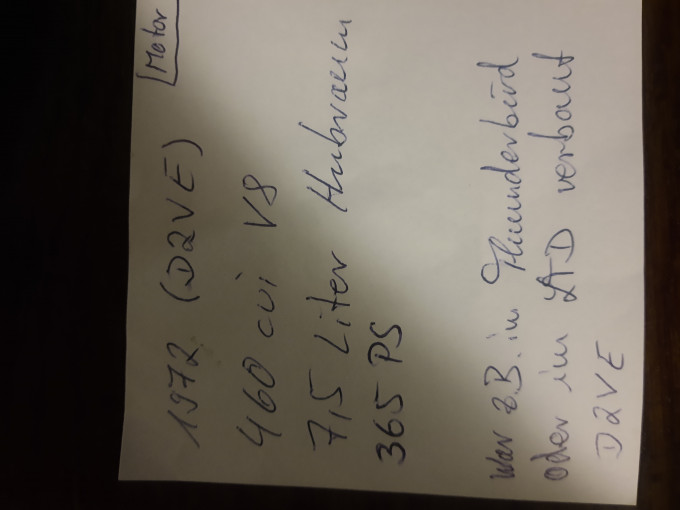 Motor
1972 (D2VE)
460 cui V8
7,5 Liter Hubraum
365 PS
War z.B. im Thunderbird
oder im LTD verbaut
D2VE